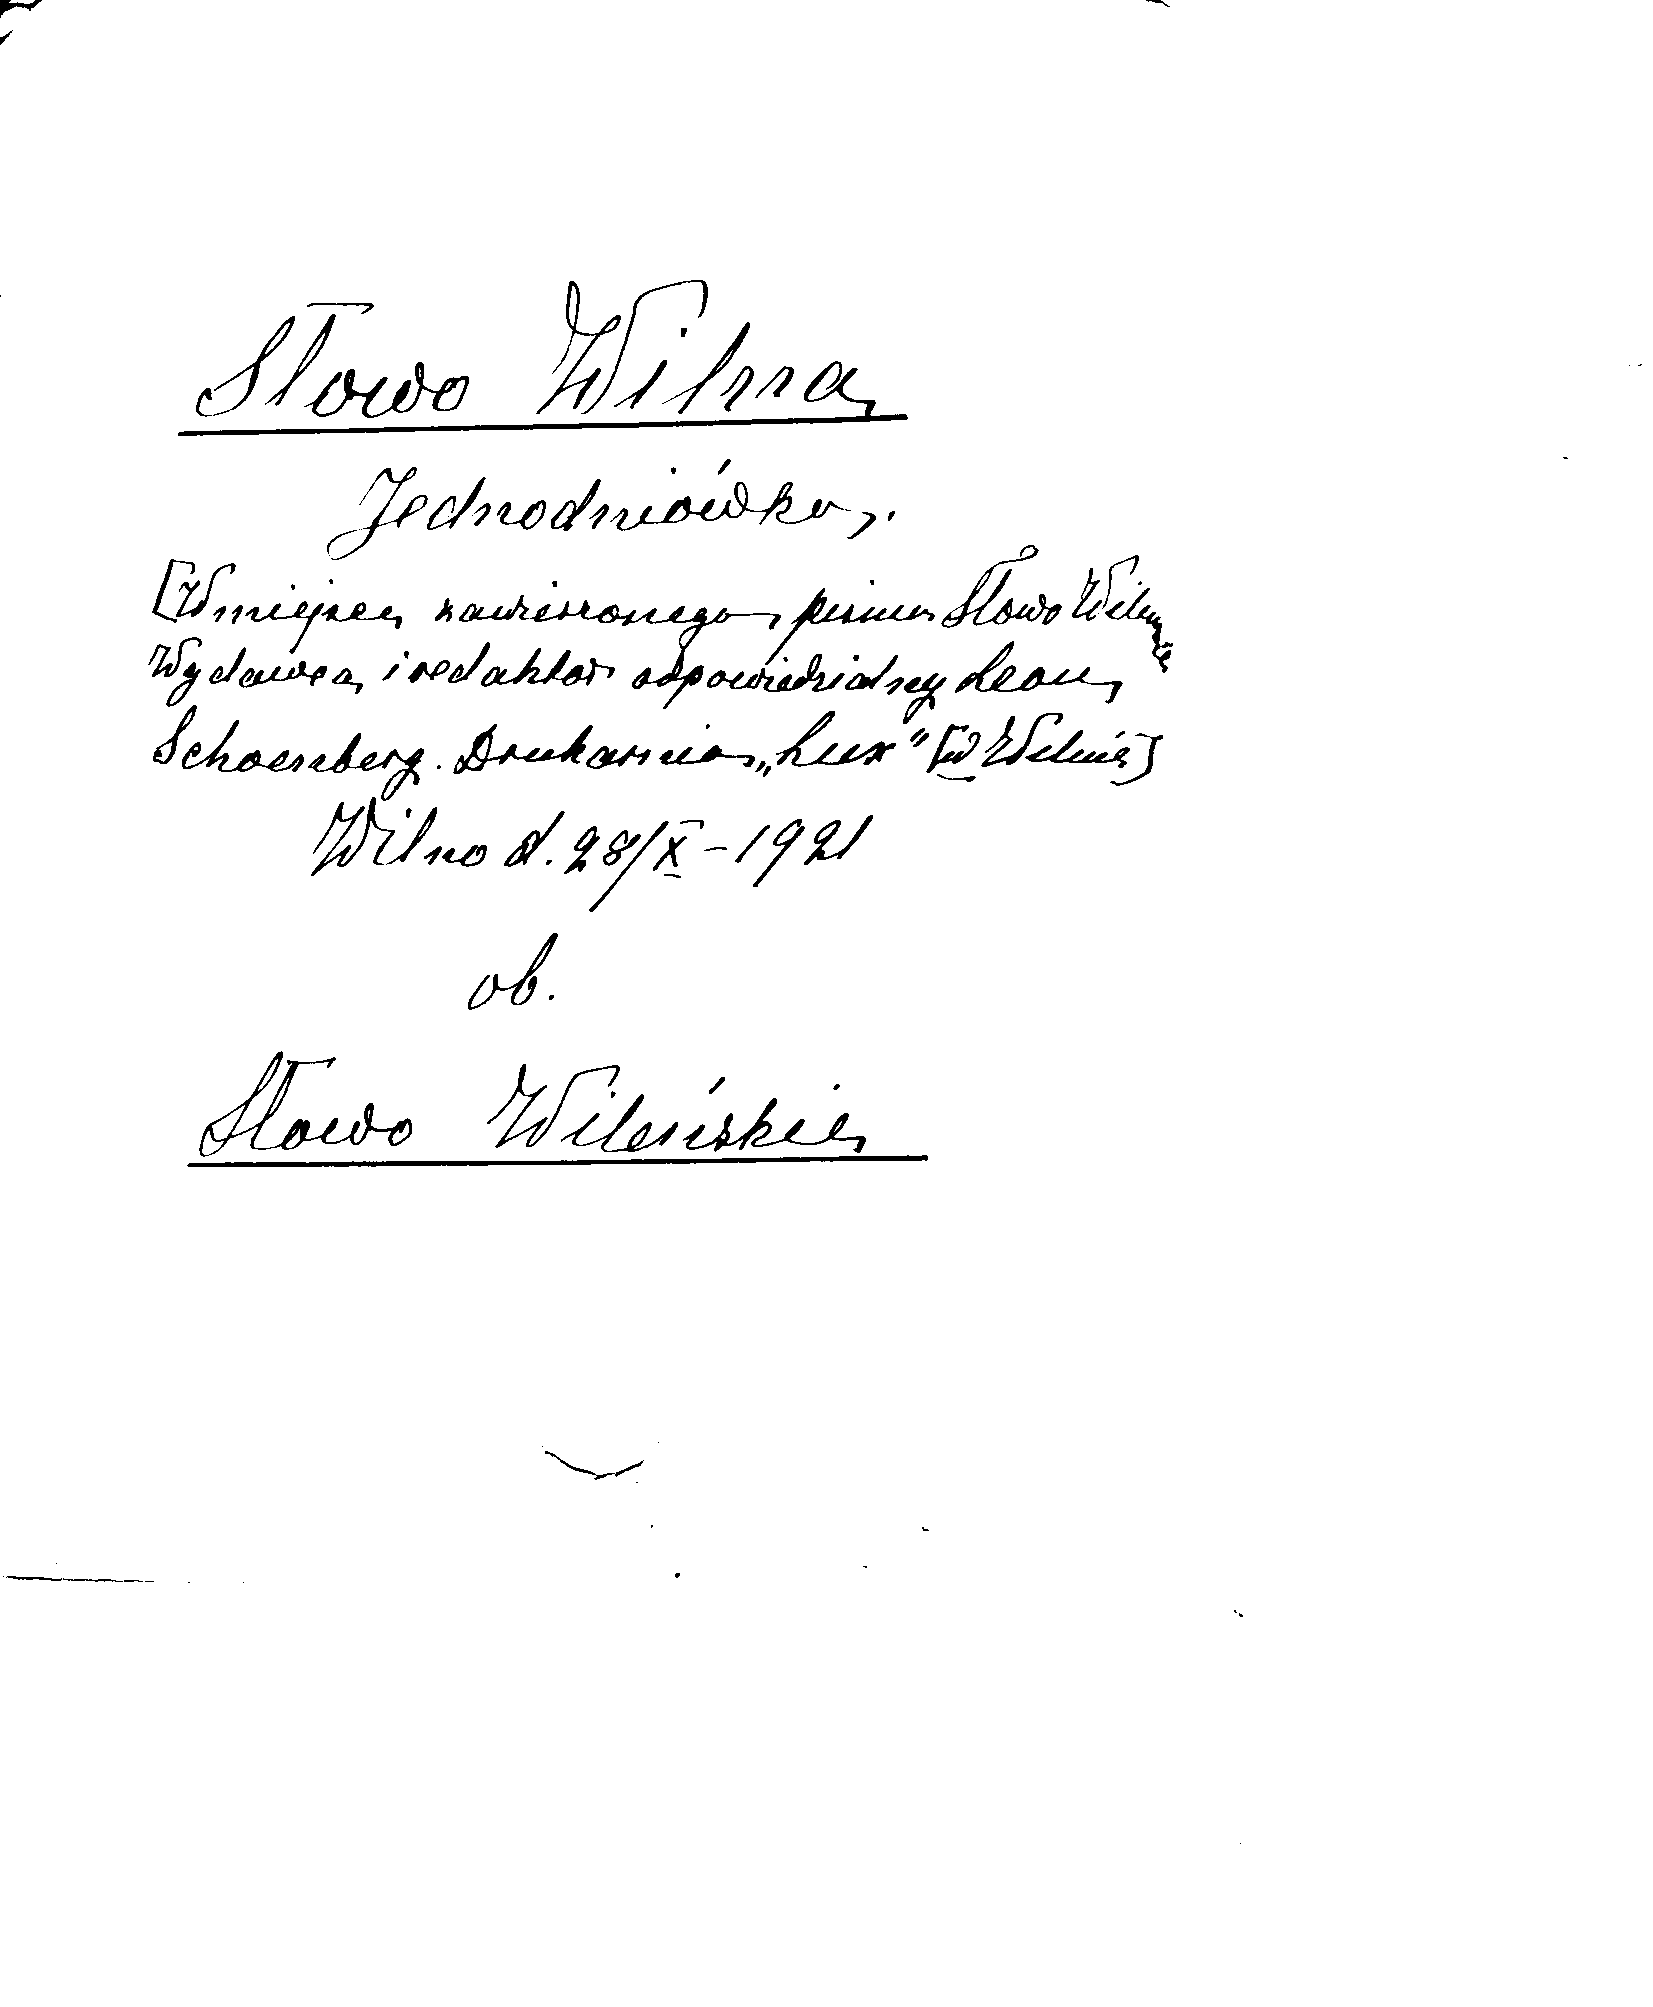 Słowo Wilna
Jednodniówka.
[W miejsce zawieszonego pisma Słowo Wileńskie
Wydawca i redaktor odpowiedzialny Leon
Schoenberg. Drukarnia „Lux” [w Wilnie]
Wilno d. 28/X – 1921
ob.
Słowo Wileńskie